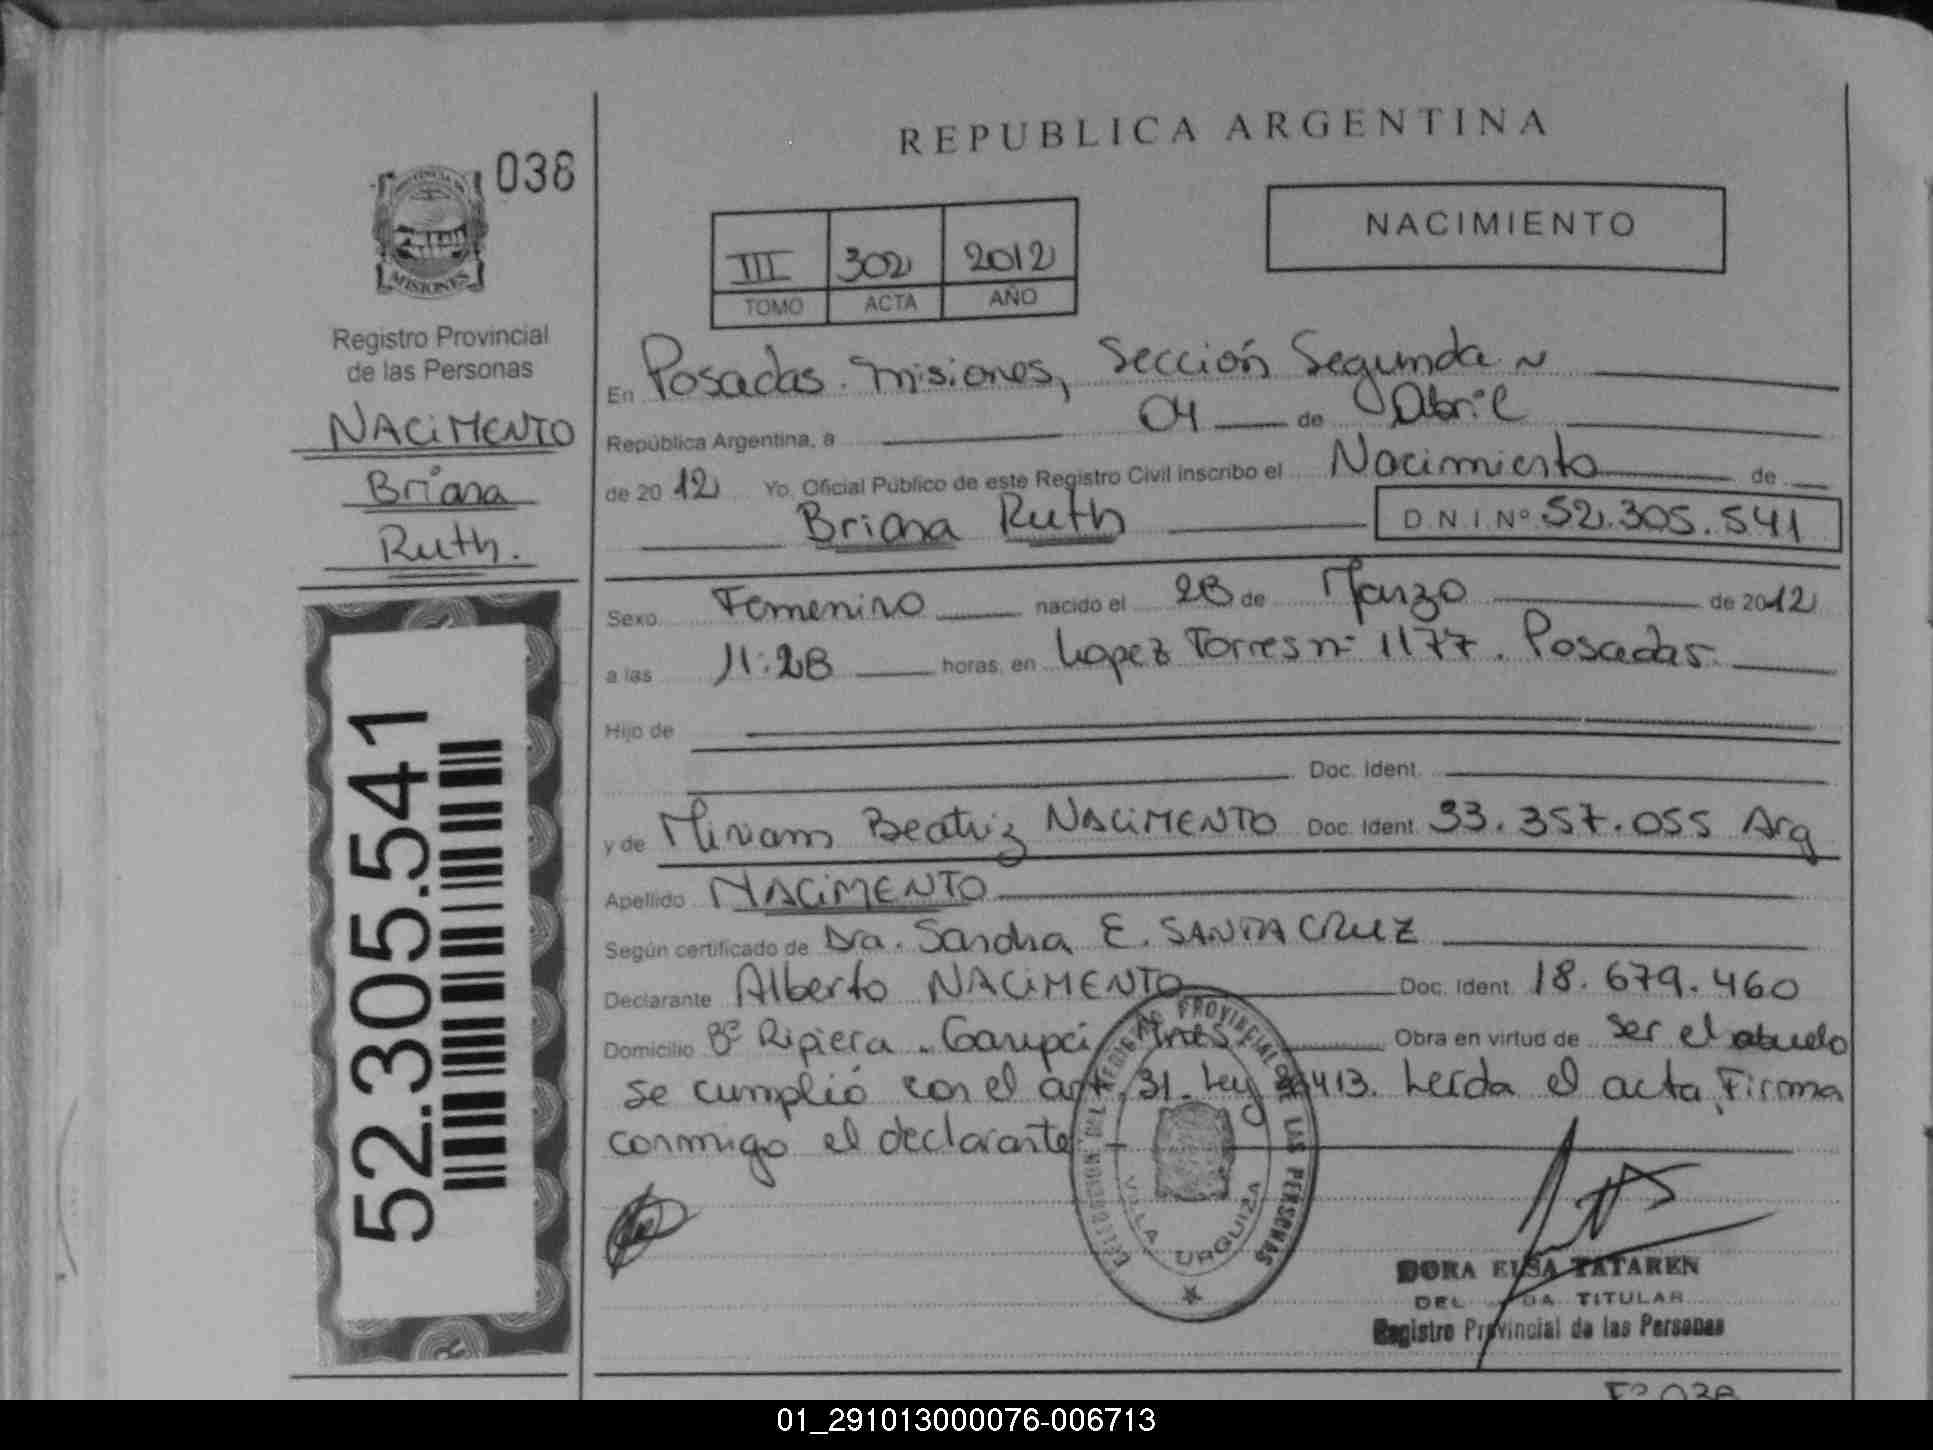 REPUBLICA ARGENTINA
038
PROVINCIA DE
MISIONES
Registro Provincial
de las Personas
NACIMENTO
Briana
Ruth.
52.305.541
NACIMIENTO
III 302 2012
TOMO ACTA AÑO
En Posadas. Misiones, Sección Segunda
República Argentina, a 04 de Abril
de 2012 Yo, Oficial Público de este Registro Civil inscribo el Nacimiento de
Briana Ruth D.N.I.Nº 52.305.541
Sexo Femenino nacido el 28 de Marzo de 2012
a las 11:28 horas, en Lopez Torres nº 1177. Posadas.
Hijo de
Doc. Ident.
y de Miriam Beatriz NACIMENTO Doc. Ident. 33.357.055 Arg
Apellido NACIMENTO
Según certificado de Dra. Sandra E. SANTA CRUZ
Declarante Alberto NACIMENTO Doc. Ident. 18.679.460
Domicilio Bº Ripiera - Garupá Mnes Obra en virtud de ser el abuelo
se cumplió con el art. 31. Ley 413. Leída el acta, Firma
conmigo el declarante
DELEGACION DEL REGISTRO PROVINCIAL DE LAS PERSONAS
VILLA URQUIZA
DORA ELSA TATAREN
TITULAR
Registro Provincial de las Personas
Fº 038
01_291013000076-006713